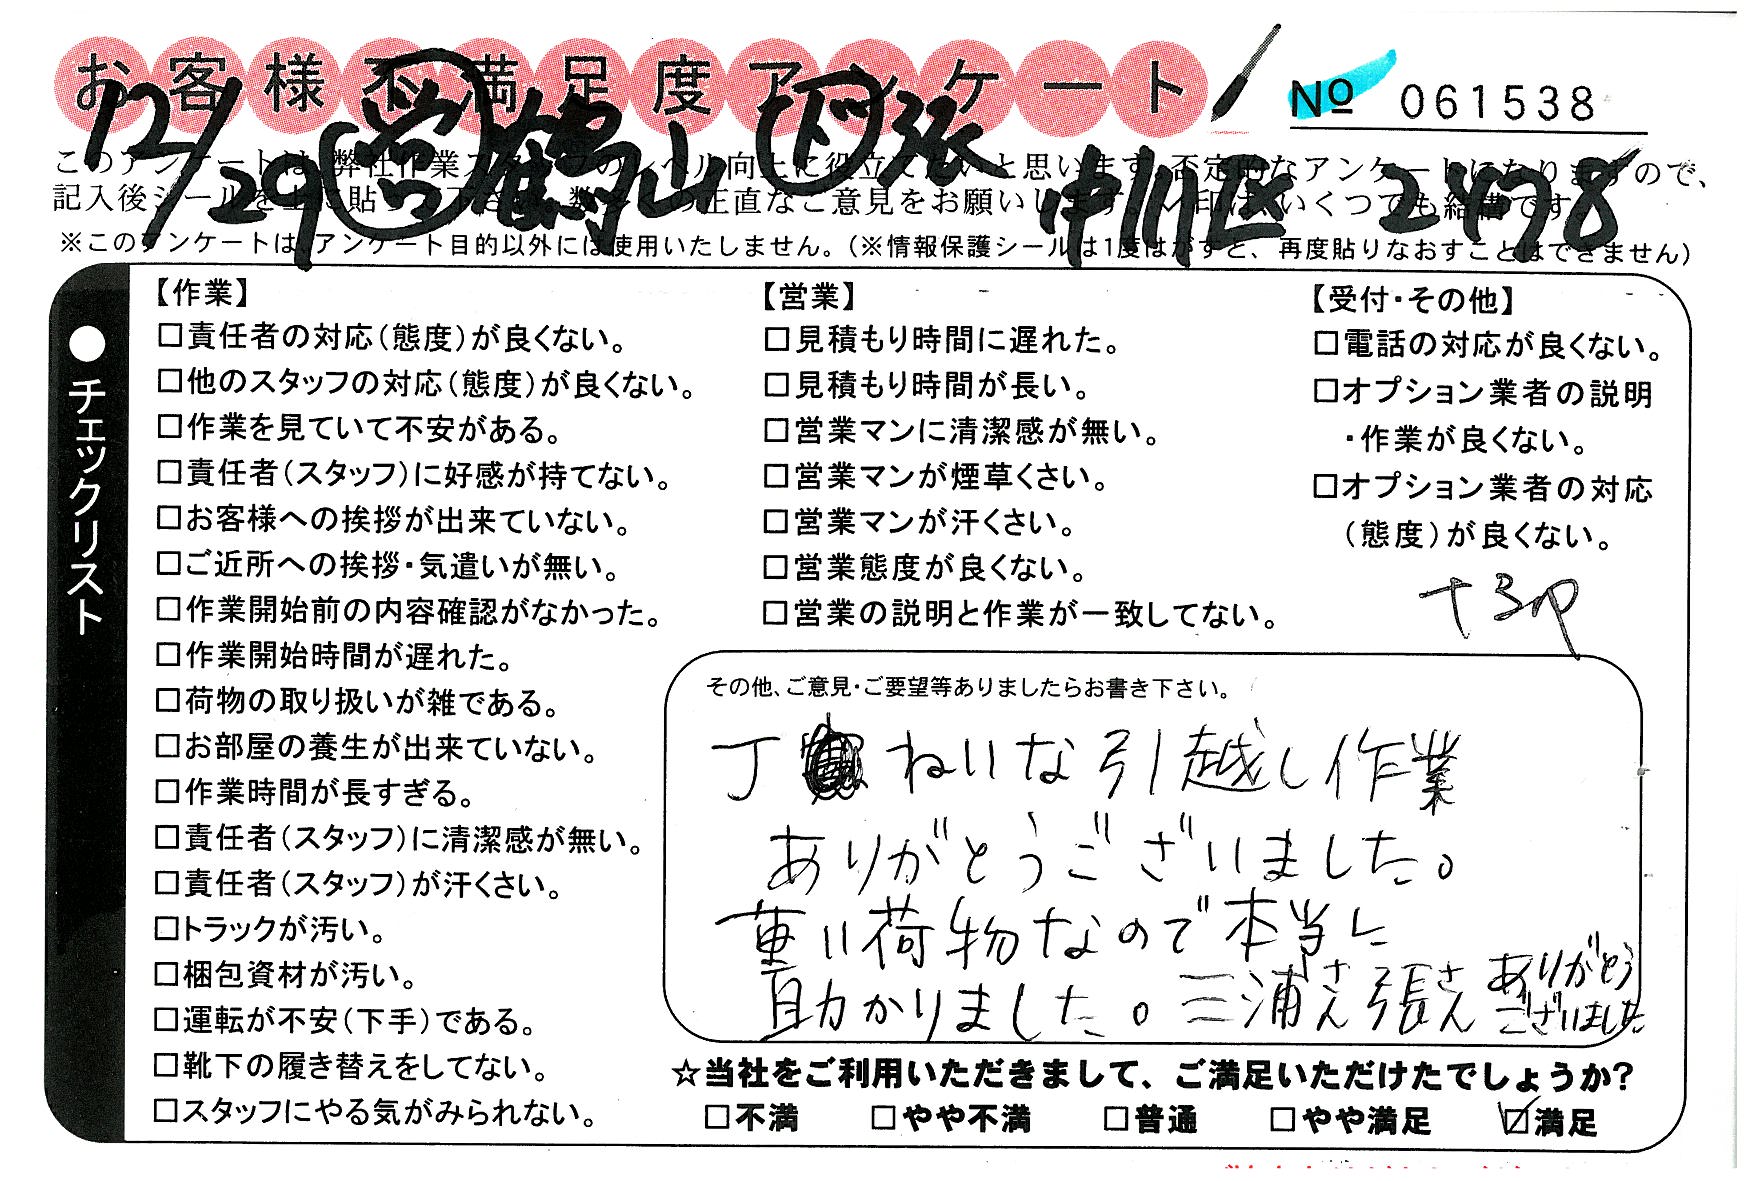 お客様不満足度アンケート
No 061538
12/29 営 鶴山 下 張 中川区 2478
このアンケートは、弊社作業スタッフのレベル向上に役立てたいと思います。否定的なアンケートになりますので、
記入後シールを上に貼って下さい。数多くの正直なご意見をお願いします。レ印は、いくつでも結構です。
※このアンケートは、アンケート目的以外には使用いたしません。(※情報保護シールは1度はがすと、再度貼りなおすことはできません)
●チェックリスト
【作業】
□責任者の対応(態度)が良くない。
□他のスタッフの対応(態度)が良くない。
□作業を見ていて不安がある。
□責任者(スタッフ)に好感が持てない。
□お客様への挨拶が出来ていない。
□ご近所への挨拶・気遣いが無い。
□作業開始前の内容確認がなかった。
□作業開始時間が遅れた。
□荷物の取り扱いが雑である。
□お部屋の養生が出来ていない。
□作業時間が長すぎる。
□責任者(スタッフ)に清潔感が無い。
□責任者(スタッフ)が汗くさい。
□トラックが汚い。
□梱包資材が汚い。
□運転が不安(下手)である。
□靴下の履き替えをしてない。
□スタッフにやる気がみられない。
【営業】
□見積もり時間に遅れた。
□見積もり時間が長い。
□営業マンに清潔感が無い。
□営業マンが煙草くさい。
□営業マンが汗くさい。
□営業態度が良くない。
□営業の説明と作業が一致してない。
【受付・その他】
□電話の対応が良くない。
□オプション業者の説明
・作業が良くない。
□オプション業者の対応
(態度)が良くない。
+3p
その他、ご意見・ご要望等ありましたらお書き下さい。
丁ねいな引越し作業
ありがとうございました。
重い荷物なので本当に
助かりました。三浦さん張さん ありがとう
ございました
☆当社をご利用いただきまして、ご満足いただけたでしょうか?
□不満 □やや不満 □普通 □やや満足 ☑満足